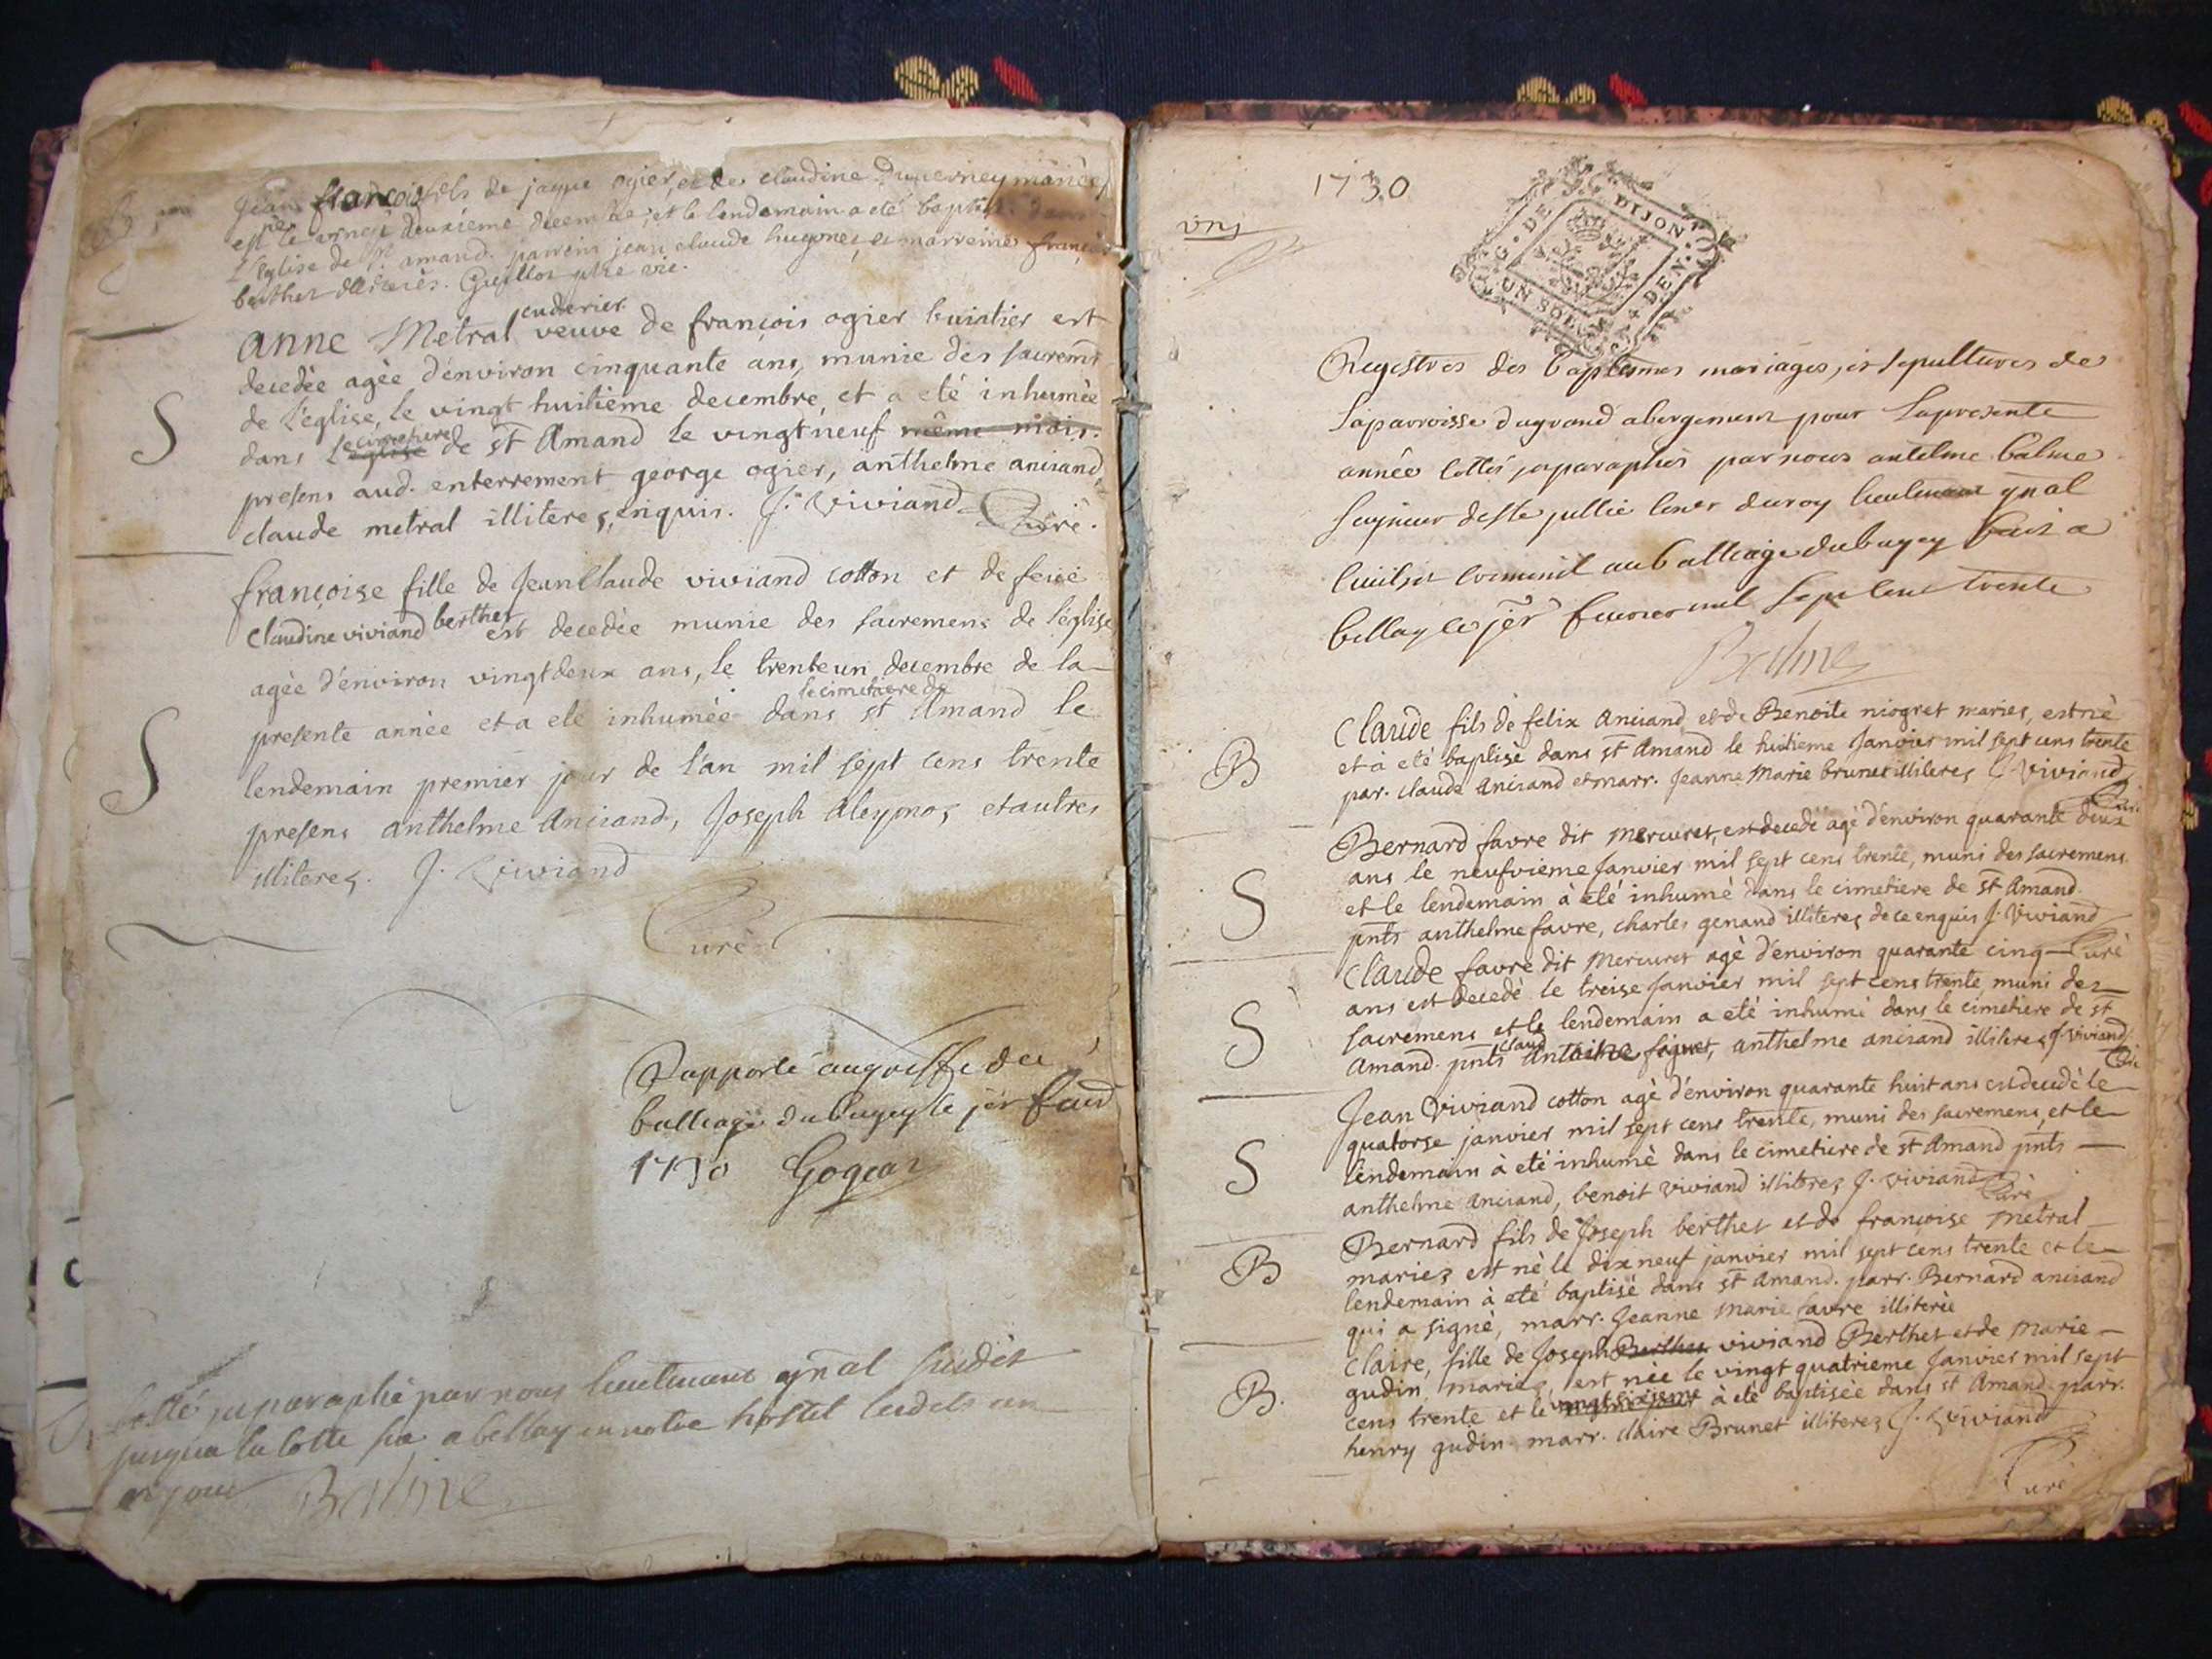 B
Jean francois fils de jayme ogier, et de claudine Duverney mariés
est né deuxieme decembre, et le lendemain a eté baptisé dans
l'Eglise de st amand. parrein jean claude hugonet et marreine
berthet Guillot ptre vic.
cuderier
anne Metral veuve de françois ogier est
decedèe agèe d'environ cinquante ans, munie des sacremts
S
de l'église, le vingt huitième decembre, et a eté inhumèe
cimetiere
dans l'eglise de st Amand le vingt neuf même mois.
presens aud. enterrement george ogier, anthelme anciand,
claude metral illiteres, enquis. J. Viviand Curé.
françoise fille de Jean Claude viviand cotton et de feüe
claudine viviand berthet est decedèe munie des sacremens de l'église
agèe d'environ vingt deux ans, le trente un decembre de la
le cimetiere de
S
presente annèe et a eté inhumèe dans st Amand le
lendemain premier jour de l'an mil sept cens trente
presens anthelme Anciand, Joseph et autres
illiteres. J. Viviand
Curé
Rapporté au greffe du
balliage du bugey le jer
1730
Cotté et paraphé par nous lieutenant gñal sudit
jusqua la cotte a bellay en notre hostel
et jour Balme
1730
vns
G. DE DIJON
UN SOL DEN.
Registres des baptesmes mariages, et sepultures de
la parroisse du grand abergement pour la presente
année cottés et paraphés par nous antelme balme
seigneur de ste jullie du roy lieutenant gñal
civil et criminel au balliage du bugey fait a
bellay le jer mil sept cent trente
Balme
Claude fils de felix Anciand et de Benoite niogret mariés, est né
B
et à eté baptisé dans st Amand le huitieme Janvier mil sept cens trente
par. claude Anciand et marr. Jeanne Marie brunet illiteres J. Viviand
Curé
Bernard favre dit Mercuret, est decedé agé d'environ quarante deux
ans le neufvieme Janvier mil sept cens trente, muni des sacremens
S
et le lendemain à eté inhumé dans le cimetiere de st Amand.
pnts anthelme favre, charles genaud illiteres de ce enquis J. Viviand
Curé
Claude favre dit Mercuret agé d'environ quarante cinq
ans est decedé le treise Janvier mil sept cens trente, muni des
S
sacremens et le lendemain a eté inhumé dans le cimetiere de st
claud
Amand. pnts Antoine, anthelme anciand illiteres J. Viviand
Curé
Jean Viviand cotton agé d'environ quarante huit ans est decedé le
quatorse janvier mil sept cens trente, muni des sacremens, et le
S
lendemain à eté inhumé dans le cimetiere de st Amand pnts
anthelme anciand, benoit Viviand illiteres J. Viviand Curé
Bernard fils de Joseph berthet et de françoise Metral
B
mariez est né le dix neuf janvier mil sept cens trente et le
lendemain à eté baptisé dans st Amand. parr. Bernard anciand
qui a signé, marr. Jeanne Marie favre illiterée
Claire, fille de Joseph Berthet viviand Berthet et de Marie
B.
gudin mariez, est née le vingt quatrieme Janvier mil sept
cens trente et le à eté baptisée dans st Amand parr.
henry gudin marr. claire Brunet illiteres J. Viviand
Curé